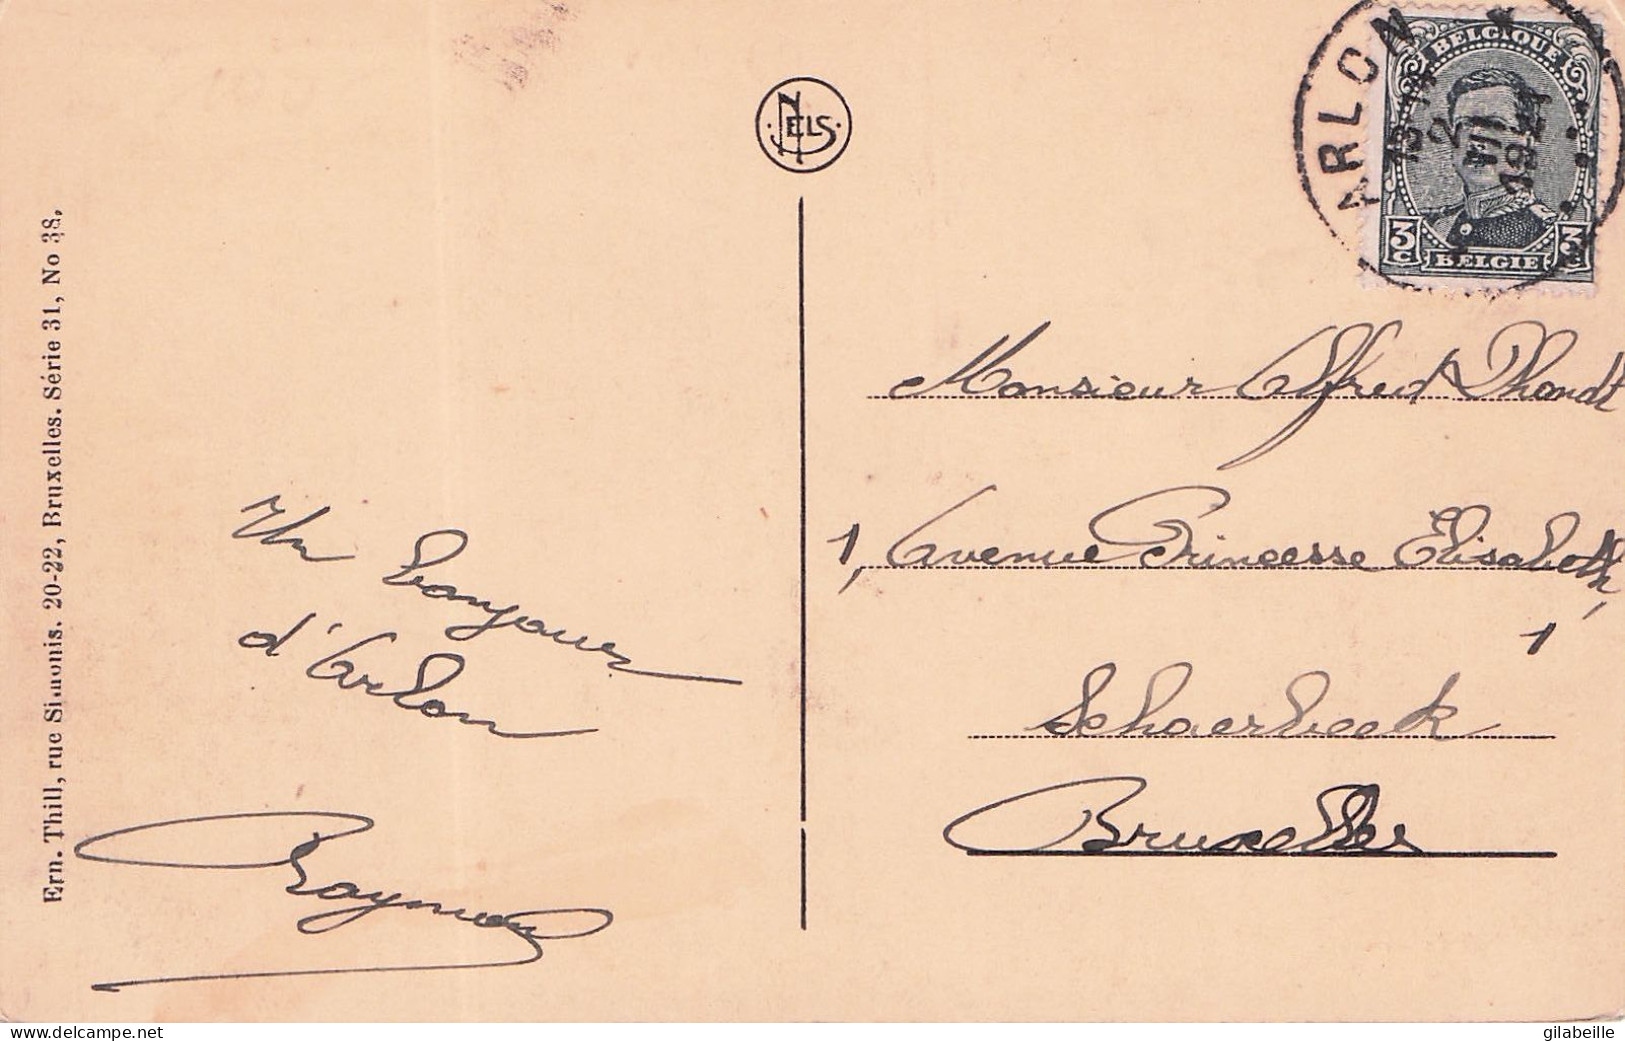 Ern. Thill, rue Simonis. 20-22, Bruxelles. Série 31, No 38.
NELS
ARLON
VII
BELGIQUE
3 C
BELGIE
Un bonjour
d'Arlon
Raymond
Monsieur Alfred
1, Avenue Princesse Élisabeth,
1
Schaerbeek
Bruxelles
www.delcampe.net
gilabeille